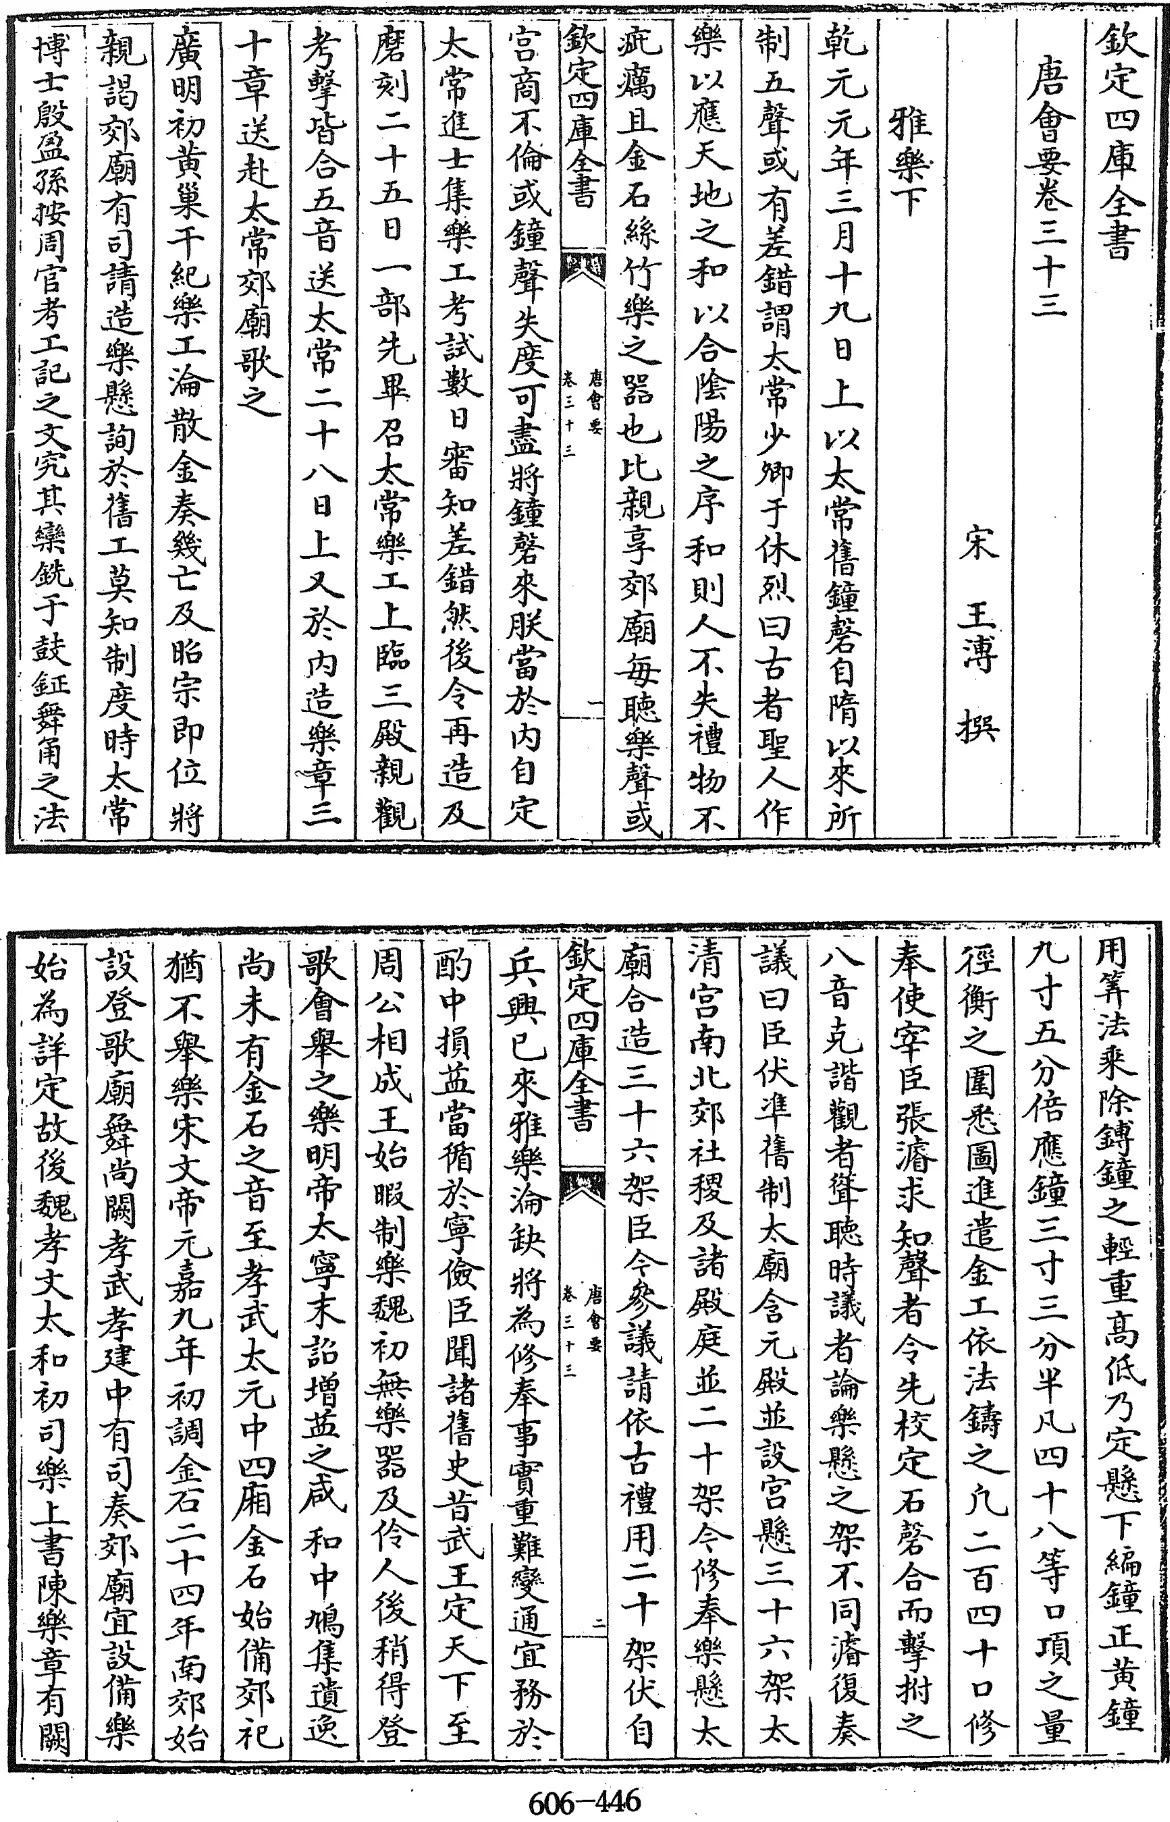 欽定四庫全書
唐會要卷三十三
宋 王溥 撰
雅樂下
乾元元年三月十九日上以太常舊鐘磬自隋以來所
制五聲或有差錯謂太常少卿于休烈曰古者聖人作
樂以應天地之和以合陰陽之序和則人不失禮物不
疵癘且金石絲竹樂之器也比親享郊廟每聽樂聲或
欽定四庫全書
唐會要
卷三十三
一
宮商不倫或鐘聲失度可盡將鐘磬來朕當於內自定
太常進士集樂工考試數日審知差錯然後令再造及
磨刻二十五日一部先畢召太常樂工上臨三殿親觀
考擊皆合五音送太常二十八日上又於內造樂章三
十章送赴太常郊廟歌之
廣明初黄巢干紀樂工淪散金奏幾亡及昭宗即位將
親謁郊廟有司請造樂懸詢於舊工莫知制度時太常
博士殷盈孫按周官考工記之文究其欒銑于鼓鉦舞甬之法
用筭法乘除鎛鐘之輕重高低乃定懸下編鐘正黃鐘
九寸五分倍應鐘三寸三分半凡四十八等口項之量
徑衡之圍悉圖進遣金工依法鑄之凡二百四十口修
奉使宰臣張濬求知聲者令先校定石磬合而擊拊之
八音克諧觀者聳聽時議者論樂懸之架不同濬復奏
議曰臣伏准舊制太廟含元殿並設宮懸三十六架太
清宮南北郊社稷及諸殿庭並二十架今修奉樂懸太
廟合造三十六架臣今參議請依古禮用二十架伏自
欽定四庫全書
唐會要
卷三十三
二
兵興已來雅樂淪缺將為修奉事實重難變通宜務於
酌中損益當循於寧儉臣聞諸舊史昔武王定天下至
周公相成王始暇制樂魏初無樂器及伶人後稍得登
歌會舉之樂明帝太寧末詔增益之咸和中鳩集遺逸
尚未有金石之音至孝武太元中四廂金石始備郊祀
猶不舉樂宋文帝元嘉九年初調金石二十四年南郊始
設登歌廟舞尚闕孝武孝建中有司奏郊廟宜設備樂
始為詳定故後魏孝文太和初司樂上書陳樂章有闕
606-446